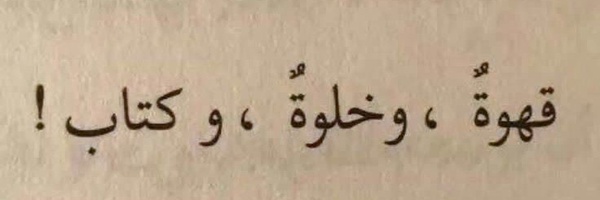 قهوةٌ ، وخلوةٌ ، و كتاب !